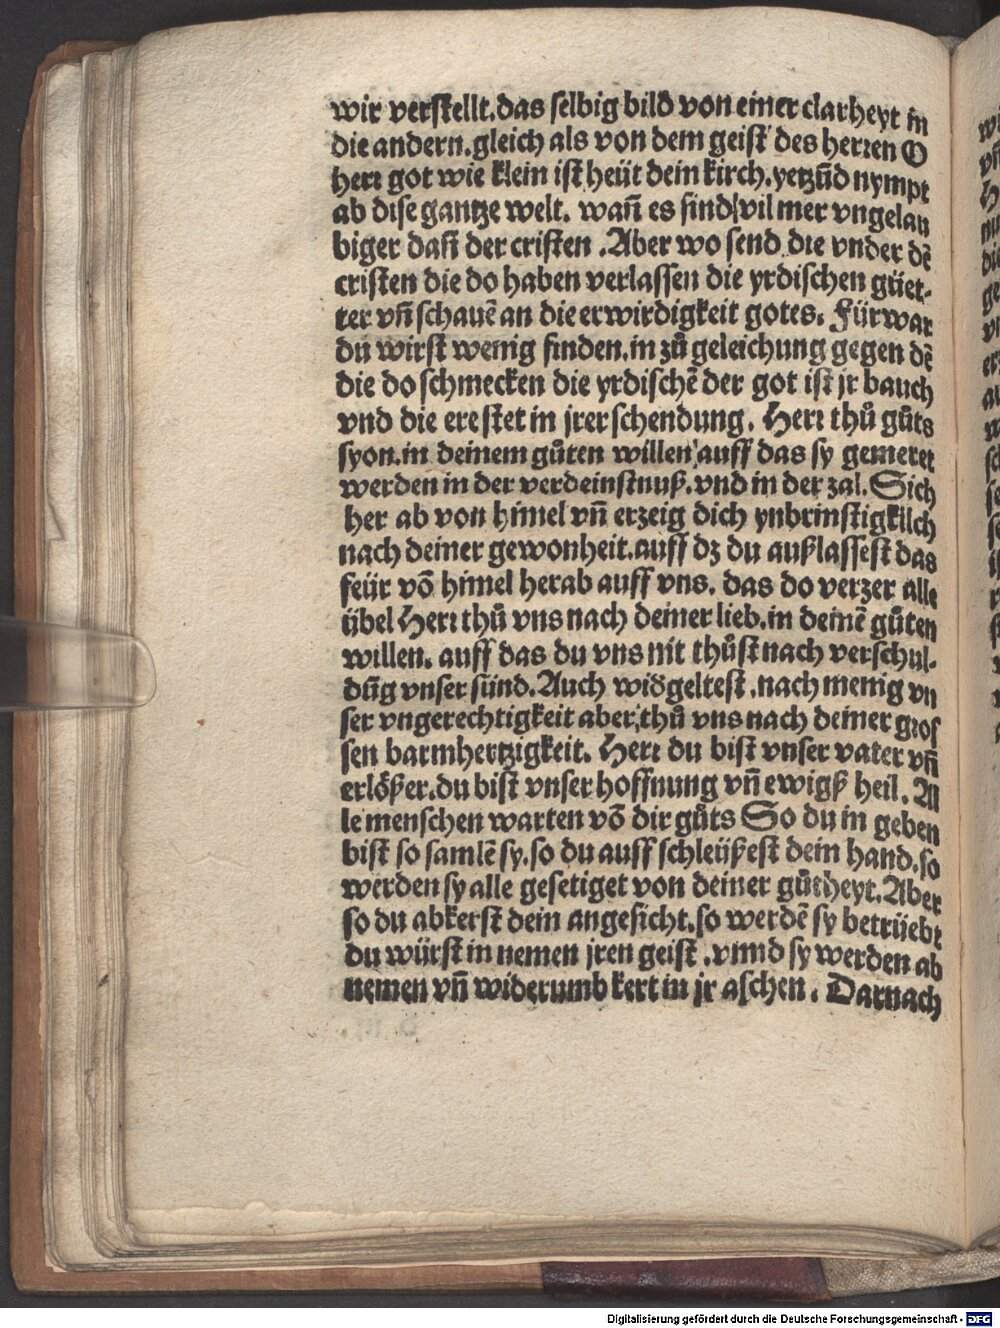 wir verstellt.das selbig bild von einer clarheyt in
die andern.gleich als von dem geist des herren O
herr got wie klein ist heüt dein kirch.yetzūd nympt
ab dise gantze welt. wañ es sind vil mer vngelau
biger dañ der cristen .Aber wo send die vnder dē
cristen die do haben verlassen die yrdischen güet-
ter vñ schauē an die erwirdigkeit gotes. Fürwar
du wirst wenig finden.in zů geleichung gegen dē
die do schmecken die yrdischē der got ist jr bauch
vnd die ere stet in jrer schendung. Herr thů gůts
syon.in deinem gůten willen auff das sy gemeret
werden in der verdeinstnuß.vnd in der zal.Sich
her ab von himel vñ erzeig dich ynbrinstigklich
nach deiner gewonheit.auff dz du außlassest das
feür vō himel herab auff vns. das do verzer alle
übel Herr thů vns nach deiner lieb.in deinē gůten
willen. auff das du vns nit thůst nach verschul-
dūg vnser sünd.Auch widgeltest .nach menig vn
ser vngerechtigkeit aber thů vns nach deiner gros
sen barmhertzigkeit. Herr du bist vnser vater vñ
erlößer.du bist vnser hoffnung vñ ewigß heil. Al
le menschen warten vō dir gůts So du in geben
bist so samlē sy.so du auff schleüßest dein hand.so
werden sy alle gesetiget von deiner gůtheyt.Aber
so du abkerst dein angesicht.so werdē sy betrüebt
du würst in nemen jren geist .vnnd sy werden ab
nemen vñ widerumb kert in jr aschen. Darnach
Digitalisierung gefördert durch die Deutsche Forschungsgemeinschaft - DFG